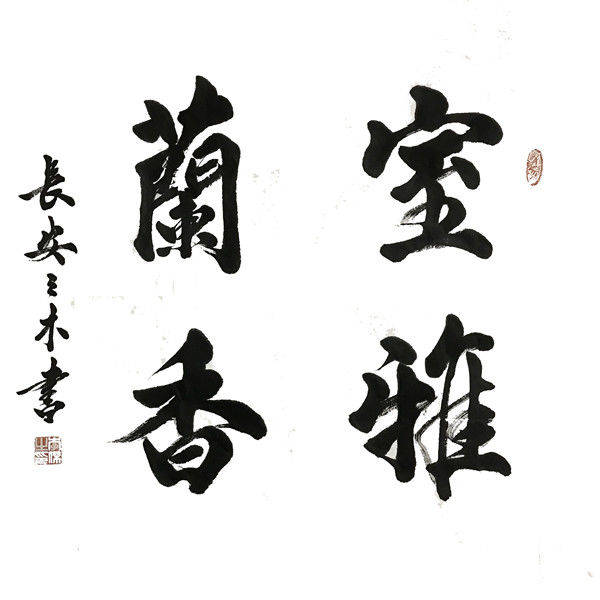 室雅
蘭香
長安三木書